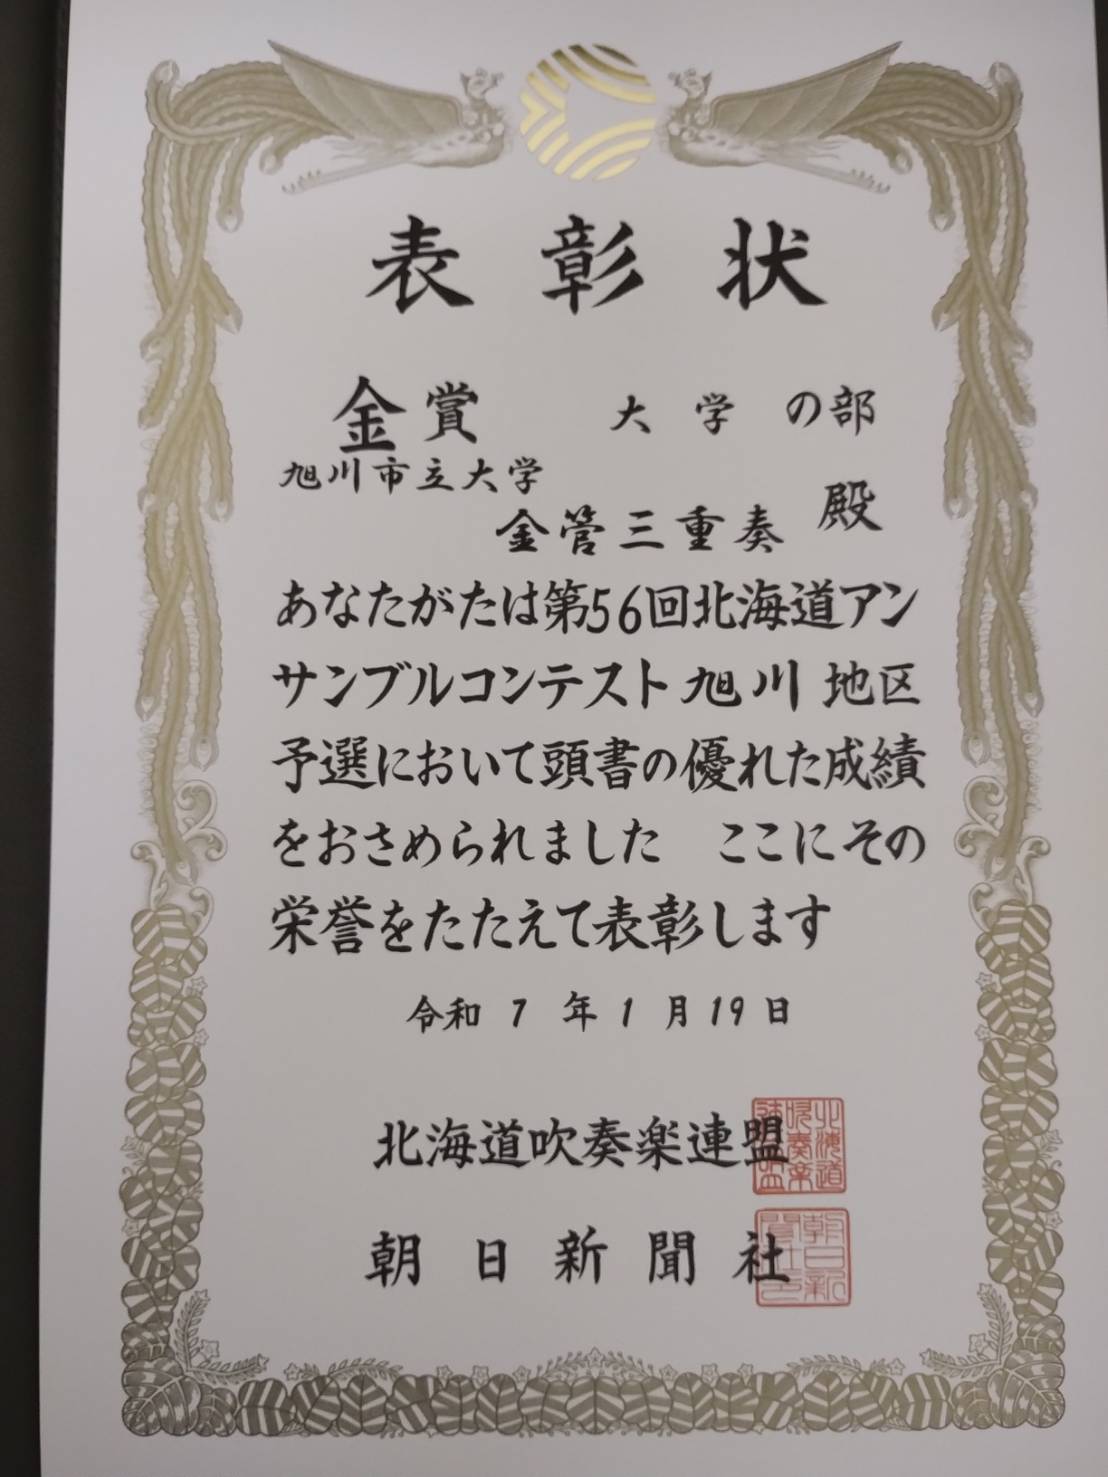 表彰状
金賞 大学の部
旭川市立大学
金管三重奏 殿
あなたがたは第56回北海道アン
サンブルコンテスト旭川地区
予選において頭書の優れた成績
をおさめられました ここにその
栄誉をたたえて表彰します
令和7年1月19日
北海道吹奏楽連盟
朝日新聞社